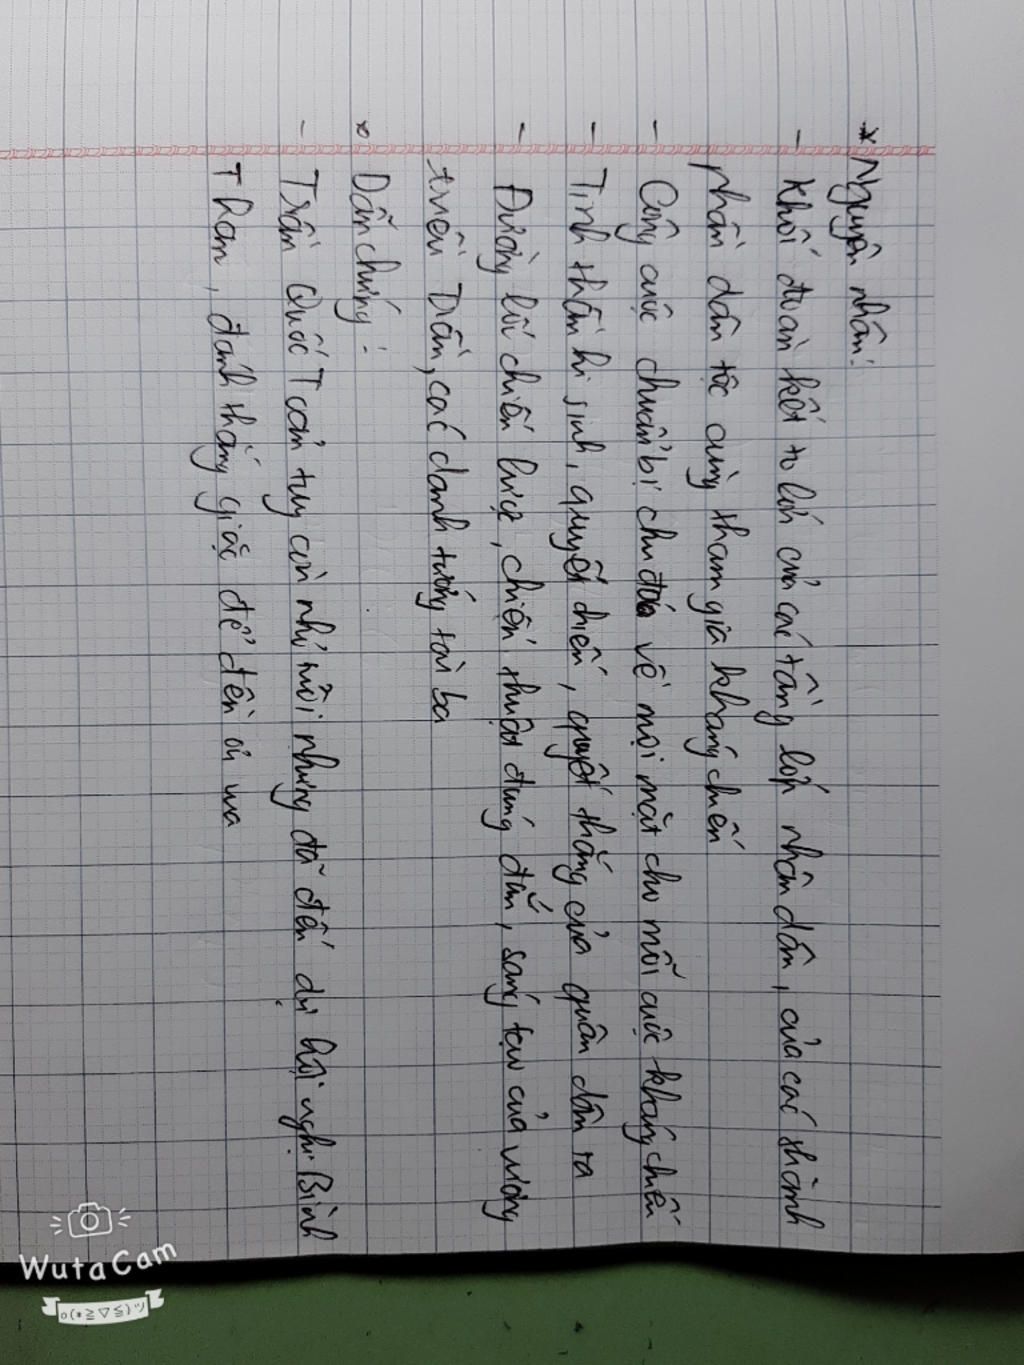 * Nguyên nhân:
- Khối đoàn kết to lớn của các tầng lớp nhân dân, của các thành
phần dân tộc cùng tham gia kháng chiến
- Công cuộc chuẩn bị chu đáo về mọi mặt cho mỗi cuộc kháng chiến
- Tinh thần hi sinh, quyết chiến, quyết thắng của quân dân ta
- Đường lối chiến lược, chiến thuật đúng đắn, sáng tạo của vương
triều Trần, các danh tướng tài ba
* Dẫn chứng:
- Trần Quốc Toản tuy còn nhỏ nhưng đã đến dự hội nghị Bình
Than, đánh thắng giặc để đền ơn vua
WutaCam